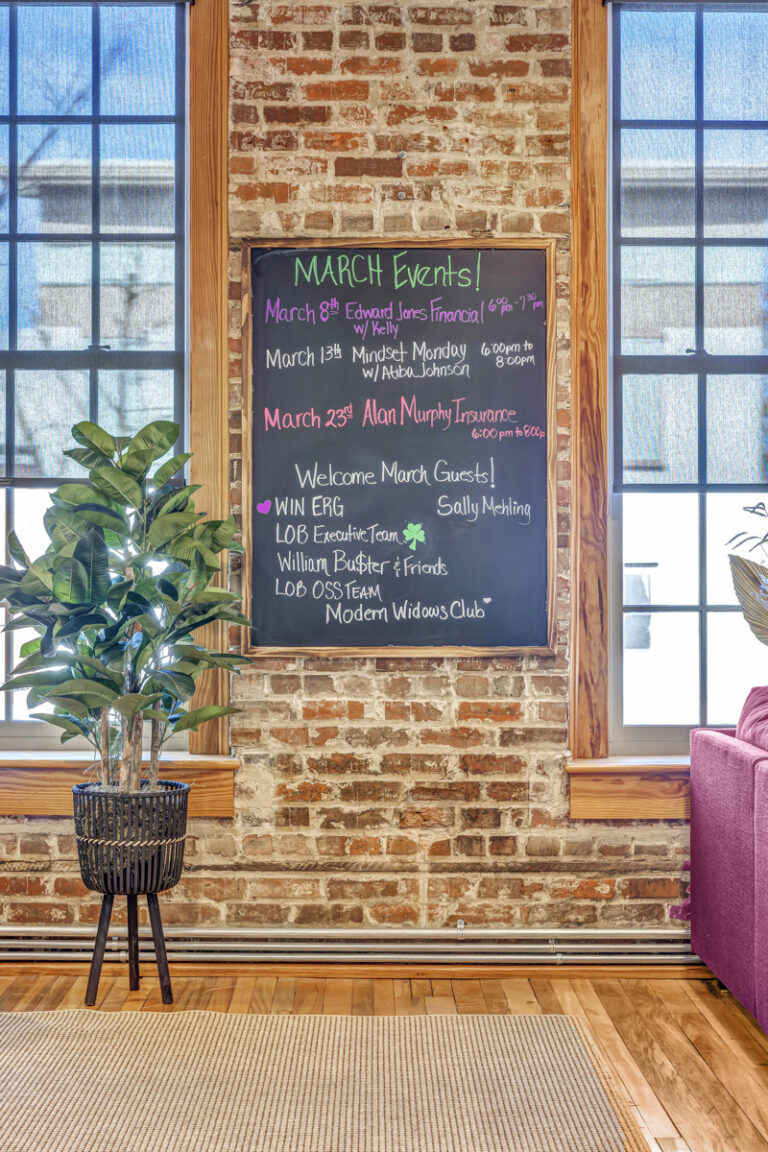 MARCH Events!
March 8th Edward Jones Financial 6:00pm - 7:30pm
w/ Kelly
March 13th Mindset Monday 6:00pm to
w/ Abba Johnson 8:00pm
March 23rd Alan Murphy Insurance
6:00pm to 8:00p
Welcome March Guests!
WIN ERG Sally Mehling
LOB Executive Team
William Bu$ter & Friends
LOB OSS TEAM
Modern Widows Club